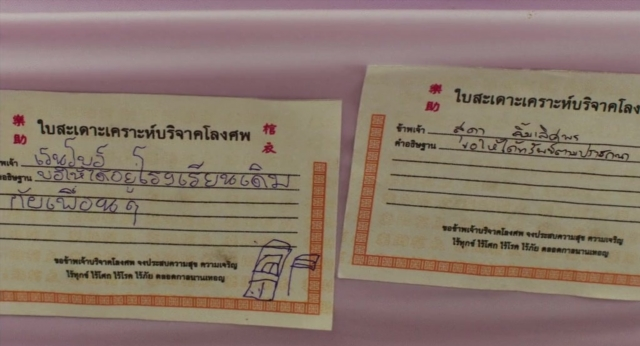 樂助
ใบสะเดาะเคราะห์บริจาคโลงศพ
棺衣
พเจ้า
ธิษฐาน ขอให้ได้อยู่โรงเรียนเดิม
กับเพื่อน ๆ
ขอข้าพเจ้าบริจาคโลงศพ จงประสบความสุข ความเจริญ
ไร้ทุกข์ ไร้โศก ไร้โรค ไร้ภัย ตลอดกาลนานเทอญ
樂助
ใบสะเดาะเคราะห์บริจาคโลง
ข้าพเจ้า สุดา
คำอธิษฐาน ขอให้ได้ทรัพย์ตามปรารถนา
ขอข้าพเจ้าบริจาคโลงศพ จงประสบความสุข ความเจริญ
ไร้ทุกข์ ไร้โศก ไร้โรค ไร้ภัย ตลอดกาลนานเทอญ